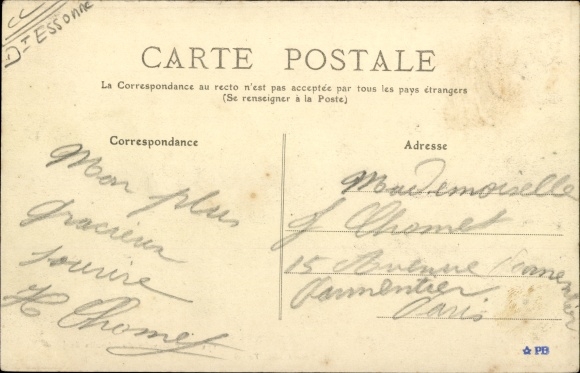 Dt ESSONNE
CARTE POSTALE
La Correspondance au recto n'est pas acceptée par tous les pays étrangers
(Se renseigner à la Poste)
Correspondance
Mon plus
gracieux
sourire
H Chomet
Adresse
Mademoiselle
J Chomet
15 Avenue Parmentier
Parmentier
Paris
PB